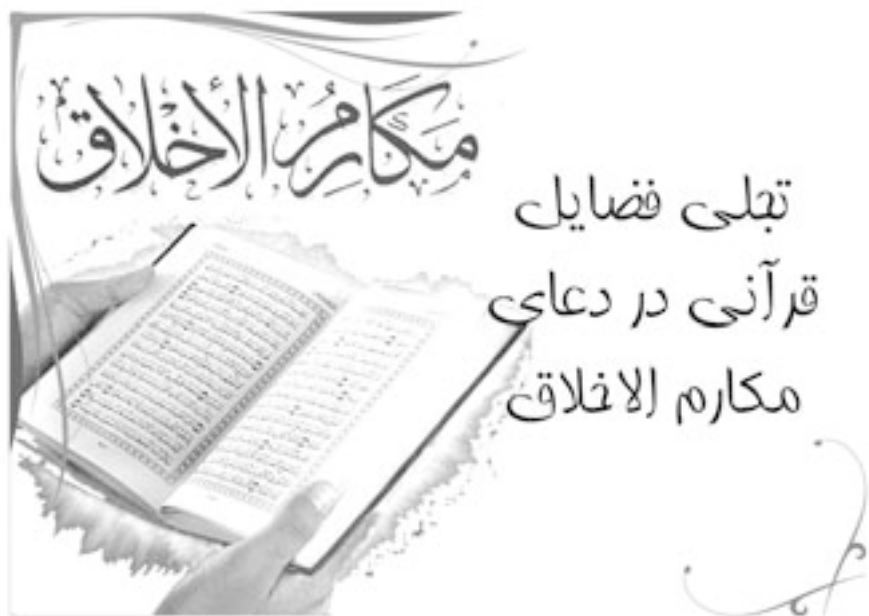 مَكَارِمُ الأَخْلاق
تجلی فضایل
قرآنی در دعای
مکارم الاخلاق